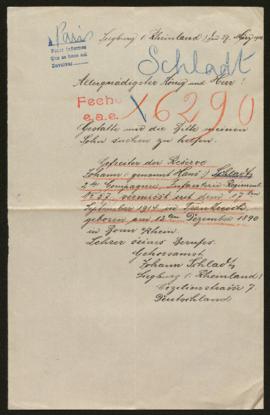 Paris
Pour Informes
Siegburg (Rheinland) den 27. Mai
Schladt
Allergnädigster König und Herr!
Fecho
e.a.e.
X 6290
Gestatte mir die Bitte meinen
Sohn suchen zu helfen.
Gefreiter der Reserve
Johann (genannt Hans) Schladt
2te Compagnie, Infanterie Regiment
vermisst seit dem
September 1914 in
geboren am 12ten Dezember 1890
in Bonn Rhein.
Lehrer seines Berufes.
Gehorsamst
Johann Schladt
Siegburg (Rheinland)
7
Deutschland